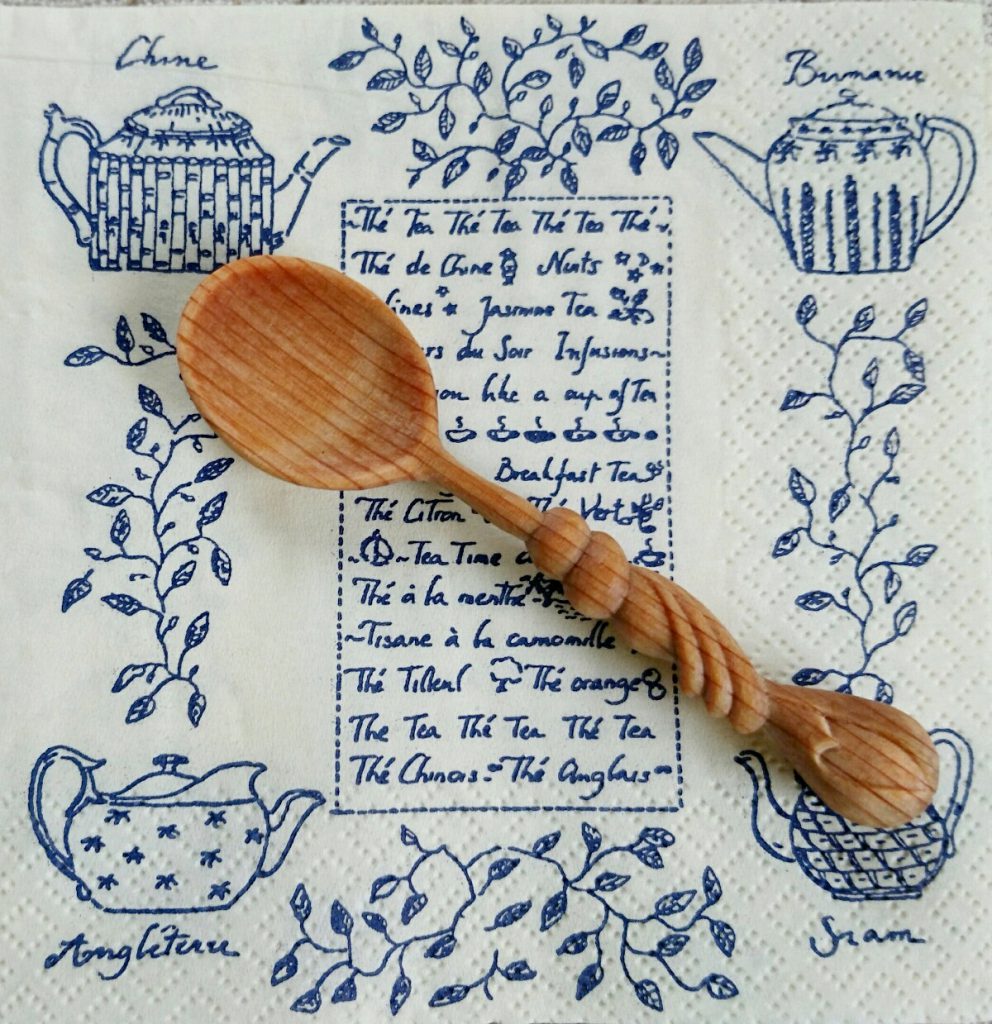 Chine
Birmanie
~Thé Tea Thé Tea Thé Tea Thé~
Thé de Chine Nuits
Jasmine Tea
du Soir Infusions~
like a cup of Tea
Breakfast Tea
Thé Citron Thé Vert
~ ~Tea Time
Thé à la menthe
~Tisane à la camomille
Thé Tilleul Thé orange
The Tea Thé Tea Thé Tea
Thé Chinois ~ Thé Anglais ~
Angléterre
Siam